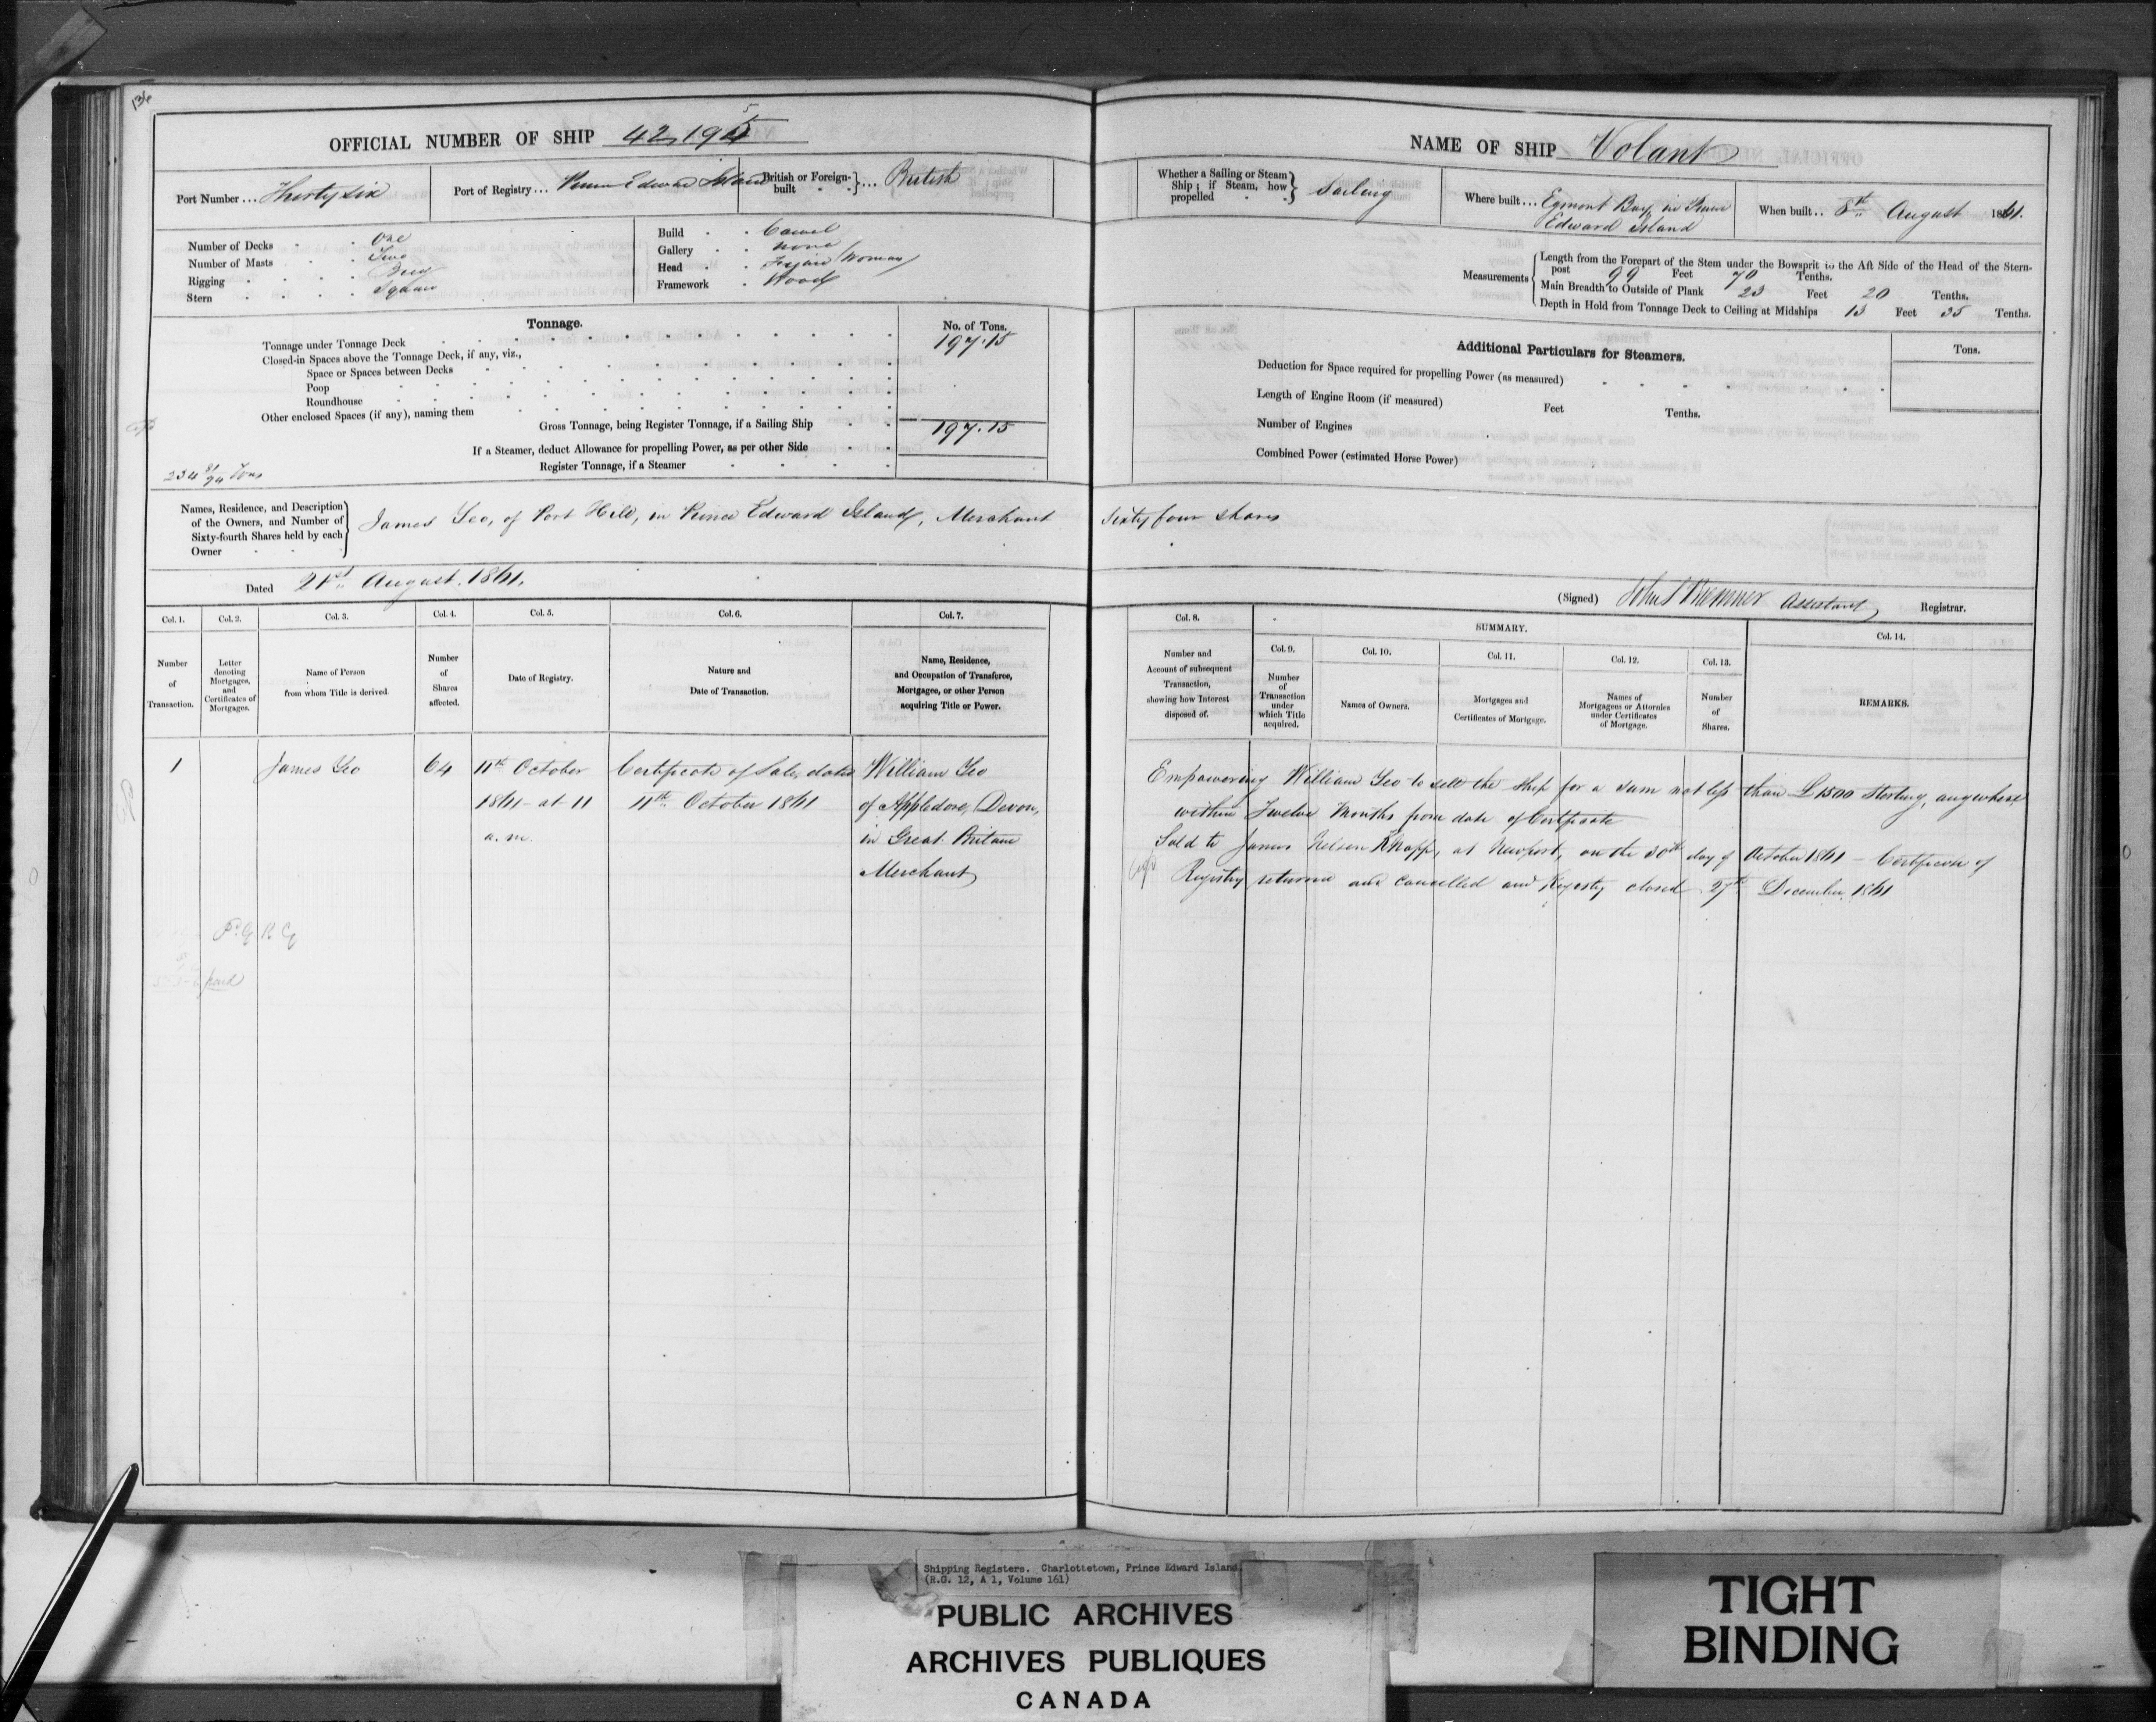 136
OFFICIAL NUMBER OF SHIP 42,195
Port Number ... Thirty six
Port of Registry ... Prince Edward Island
British or Foreign-built } ... British
Number of Decks One
Number of Masts Two
Rigging Brig
Stern Square
Build Carvel
Gallery none
Head Figure Woman
Framework Wood
Tonnage.
No. of Tons.
Tonnage under Tonnage Deck 197.15
Closed-in Spaces above the Tonnage Deck, if any, viz.,
Space or Spaces between Decks
Poop
Roundhouse
Other enclosed Spaces (if any), naming them
Gross Tonnage, being Register Tonnage, if a Sailing Ship 197.15
If a Steamer, deduct Allowance for propelling Power, as per other Side
Register Tonnage, if a Steamer
234 81/94 Tons
Names, Residence, and Description of the Owners, and Number of Sixty-fourth Shares held by each Owner
James Yeo, of Port Hill, in Prince Edward Island, Merchant
Dated 21st August, 1861.
Col. 1. Col. 2. Col. 3. Col. 4. Col. 5. Col. 6. Col. 7.
Number of Transaction.
Letter denoting Mortgages, and Certificates of Mortgages.
Name of Person from whom Title is derived.
Number of Shares affected.
Date of Registry.
Nature and Date of Transaction.
Name, Residence, and Occupation of Transferee, Mortgagee, or other Person acquiring Title or Power.
1 James Yeo 64 11th October Certificate of Sale, dated William Yeo
1861 - at 11 11th October 1861 of Appledore, Devon,
a. m. in Great Britain
Merchant
paid
NAME OF SHIP Volant
Whether a Sailing or Steam Ship; if Steam, how propelled } Sailing
Where built ... Egmont Bay, in Prince Edward Island
When built .. 8th August 1861.
Measurements
Length from the Forepart of the Stem under the Bowsprit to the Aft Side of the Head of the Stern-
post 99 Feet 70 Tenths.
Main Breadth to Outside of Plank 23 Feet 20 Tenths.
Depth in Hold from Tonnage Deck to Ceiling at Midships 13 Feet 35 Tenths.
Additional Particulars for Steamers.
Tons.
Deduction for Space required for propelling Power (as measured)
Length of Engine Room (if measured) Feet Tenths.
Number of Engines
Combined Power (estimated Horse Power)
Sixty four shares
(Signed) Assistant Registrar.
Col. 8.
SUMMARY.
Col. 9. Col. 10. Col. 11. Col. 12. Col. 13. Col. 14.
Number and Account of subsequent Transaction, showing how Interest disposed of.
Number of Transaction under which Title acquired.
Names of Owners.
Mortgages and Certificates of Mortgage.
Names of Mortgagees or Attornies under Certificates of Mortgage.
Number of Shares.
REMARKS.
Empowering William Yeo to sell the Ship for a sum not less than £1500 Sterling, anywhere
within Twelve Months from date of Certificate
Sold to James Nelson Knapp, at Newport, on the 30th day of October 1861 - Certificate of
Registry returned and cancelled and Registry closed 27th December 1861
Shipping Registers. Charlottetown, Prince Edward Island
(R.G. 12, A 1, Volume 161)
PUBLIC ARCHIVES
ARCHIVES PUBLIQUES
CANADA
TIGHT
BINDING